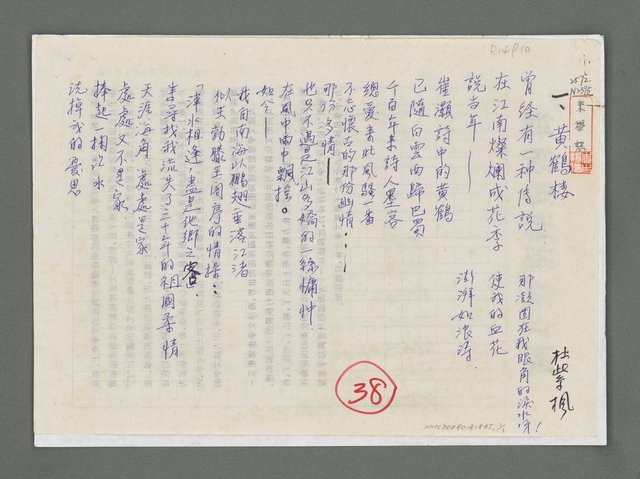 一、黃鶴楼
杜紫楓
曾经有一种傳説
在江南燦爛成花季
說当年——
崔灝詩中的黄鶴
已隨白雲而歸巴蜀
千百年来詩人墨客
總爱来此風騷一番
不忘懷古的那份幽情……
那份多情——
也只不過是江山多嬌的一絲慵忡.
在風中雨中飄搖。
如今——
我自南海以鵬翅垂落江渚
似王勃滕王阁序的情操：
「萍水相逢，盡是他鄉之客」.
来尋找我流失了三十年的祖國柔情
天涯海角，處處是家
處處又不是家.
捧起一掬江水
洗掉我的憂思
那凝固在我眼角的淚水呀!
使我的血花
澎湃如浪濤
38
P.4P10
NMTL20080181895